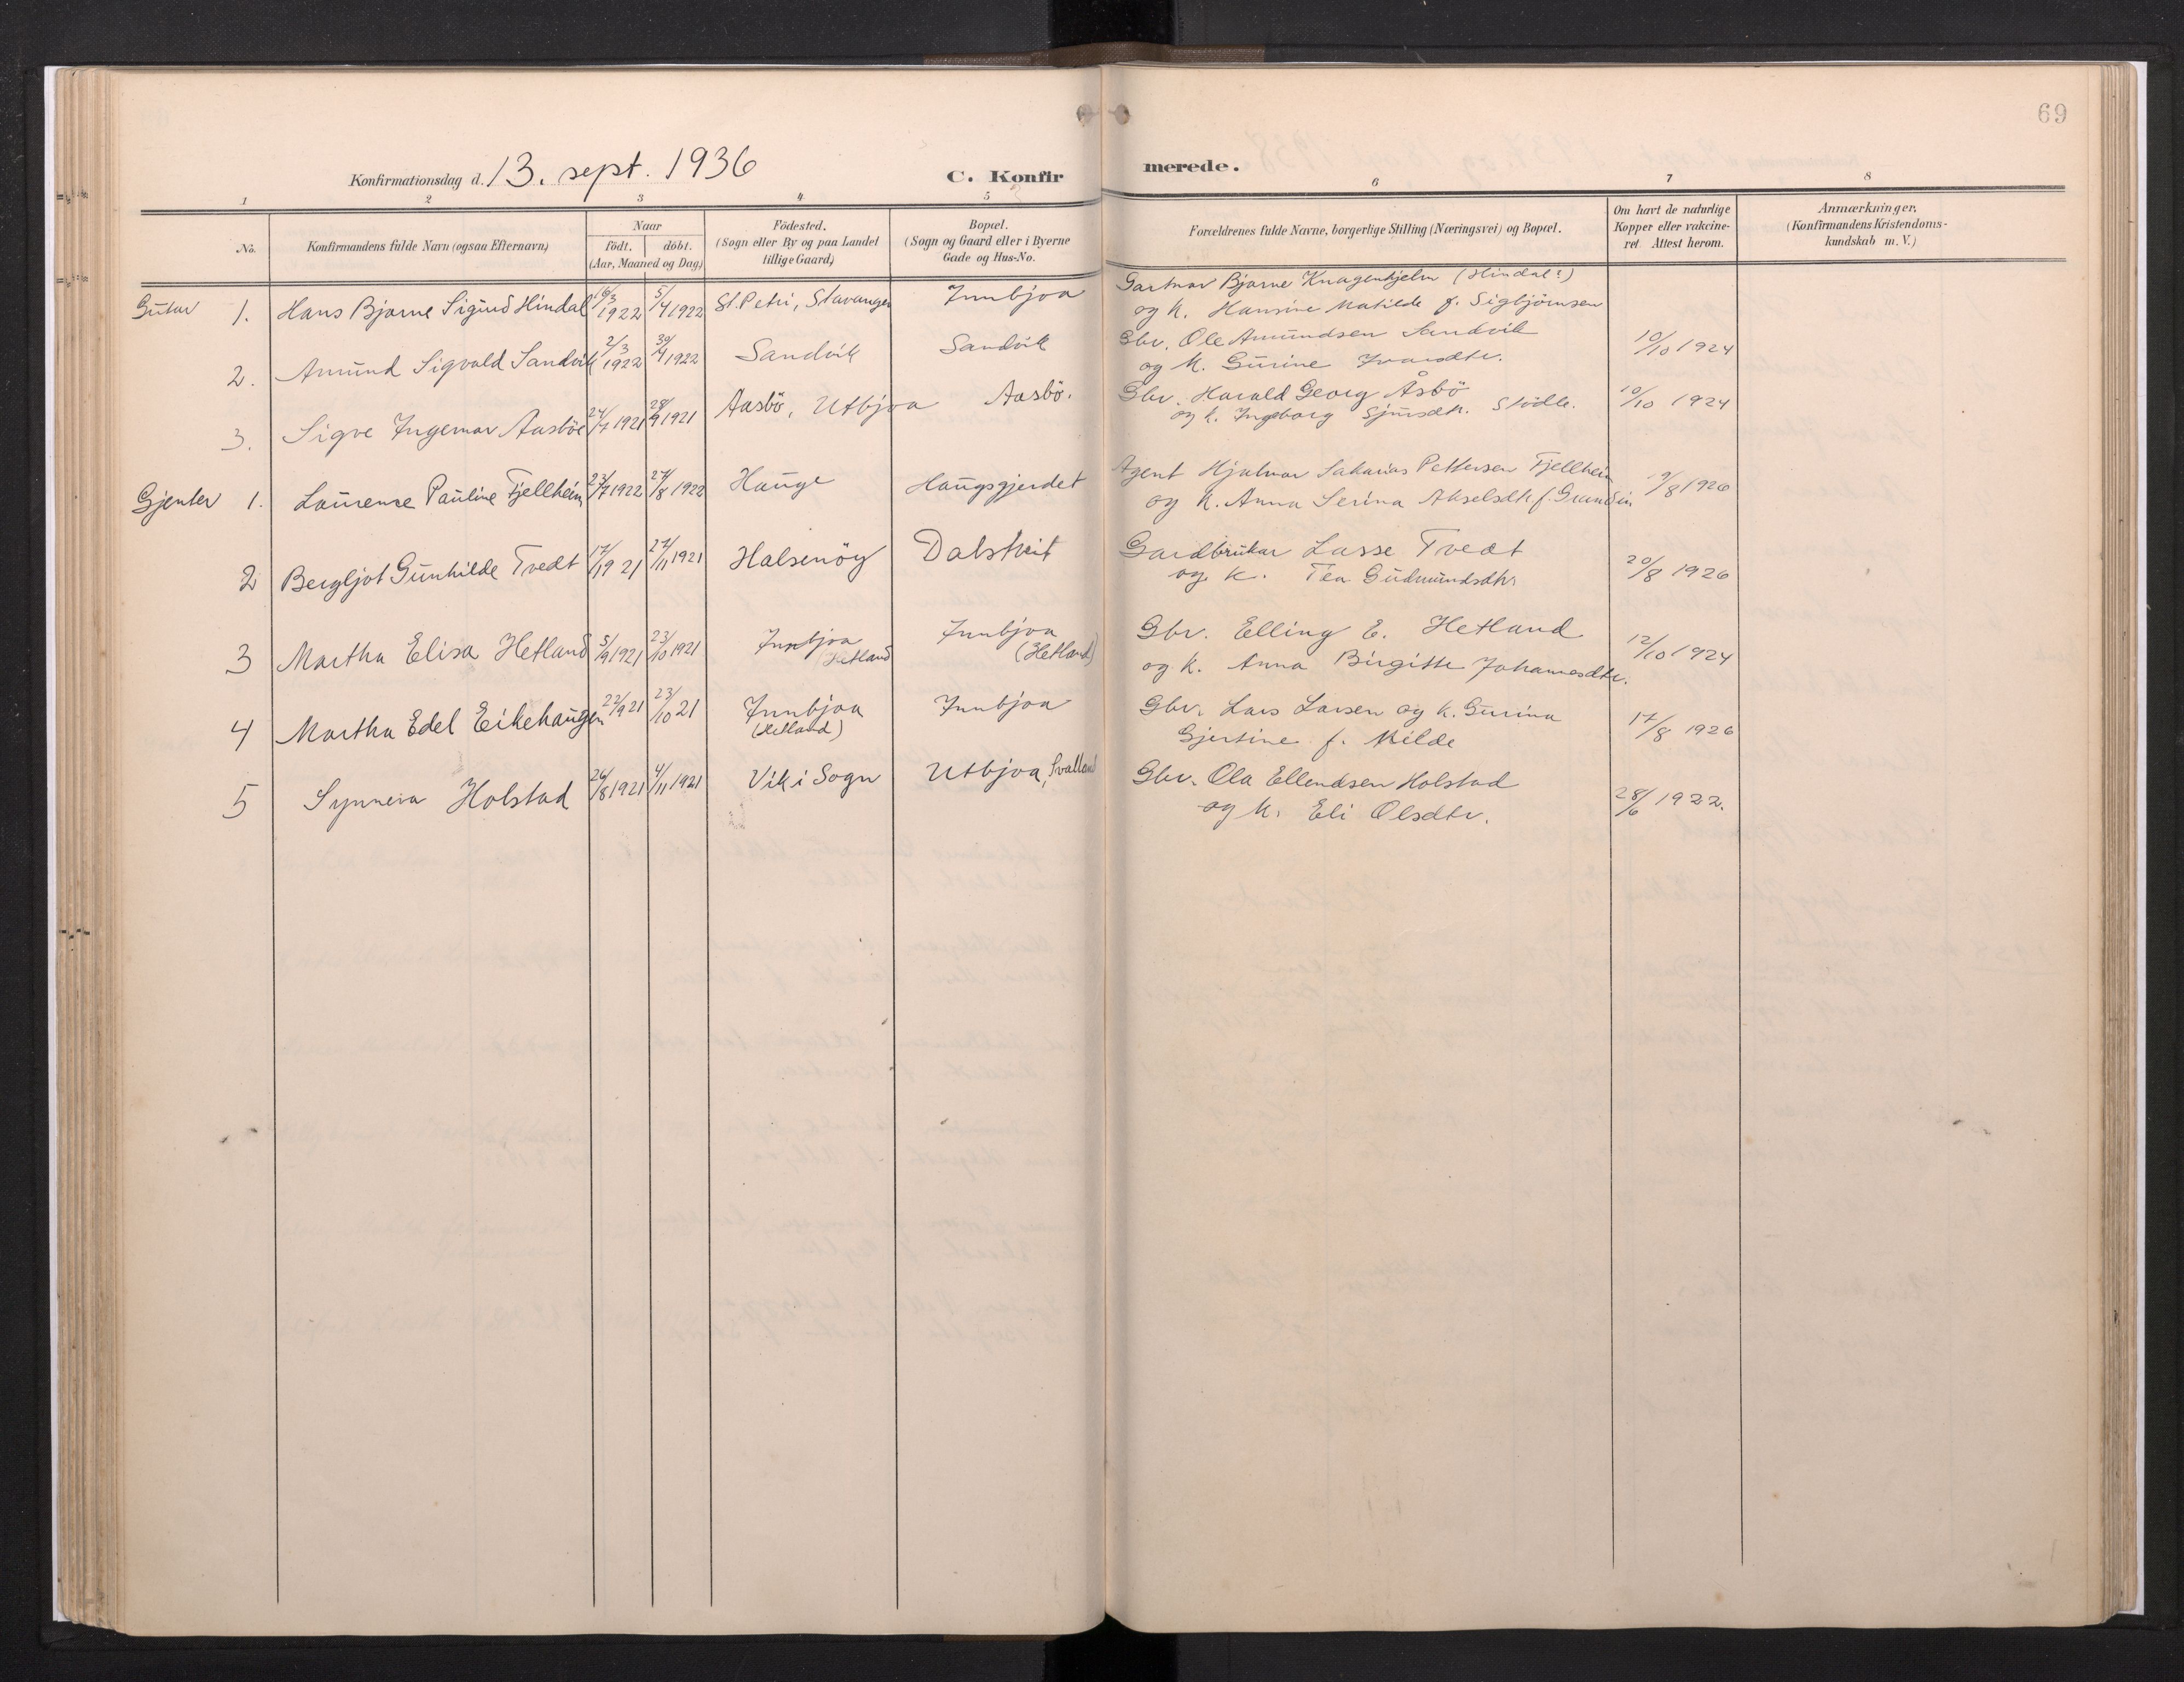 69
Konfirmationsdag d. 13. sept. 1936 C. Konfirmerede.
1 2 3 4 5 6 7 8
No. Konfirmandens fulde Navn (ogsaa Efternavn) Naar födt. döbt. (Aar, Maaned og Dag) Födested. (Sogn eller By og paa Landet tillige Gaard) Bopæl. (Sogn og Gaard eller i Byerne Gade og Hus-No. Forældrenes fulde Navne, borgerlige Stilling (Næringsvei) og Bopæl. Om havt de naturlige Kopper eller vakcineret. Attest herom. Anmærkninger. (Konfirmandens Kristendomskundskab m. V.)
Gutar 1. Hans Bjarne Sigurd Hindal 16/3 1922 5/4 1922 St. Petri, Stavanger Innbjoa Gartnar Bjarne Knagenhjelm (Hindal?)
og k. Hansine Matilde f. Sigbjörnsen
2. Amund Sigvald Sandvik 2/3 1922 30/4 1922 Sandvik Sandvik Gbr. Ole Amundsen Sandvik 10/10 1924
og k. Gurine Ivarsdtr.
3. Sigve Ingemar Aasböe 24/7 1921 28/9 1921 Aasbö, Utbjoa Aasbö. Gbr. Harald Georg Åsbö 10/10 1924
og k. Ingeborg Sjursdtr. Stödle.
Gjenter 1. Laurense Pauline Fjellheim 23/7 1922 27/8 1922 Hauge Haugsgjerdet Agent Hjalmar Sakarias Pettersen Fjellheim 9/8 1926
og k. Anna Serina Akselsdtr f. Grundin
2 Bergljot Gunhilde Tvedt 17/9 21 27/11 1921 Halsenöy Dalstveit Gardbrukar Lasse Tvedt 20/8 1926
og k. Tea Gudmundsdtr.
3 Martha Elisa Hetland 5/9 1921 23/10 1921 Innbjoa Innbjoa Gbr. Elling E. Hetland 12/10 1924
Hetland (Hetland) og k. Anna Birgitte Johannesdtr.
4 Martha Edel Eikehaugen 22/9 21 23/10 21 Innbjoa Innbjoa Gbr. Lars Larsen og k. Gurina 17/8 1926
(Hetland) Gjertine f. Milde
5 Synneva Holstad 26/8 1921 4/11 1921 Vik i Sogn Utbjoa, Svalland Gbr. Ola Ellendsen Holstad 28/6 1922.
og k. Eli Olsdtr.